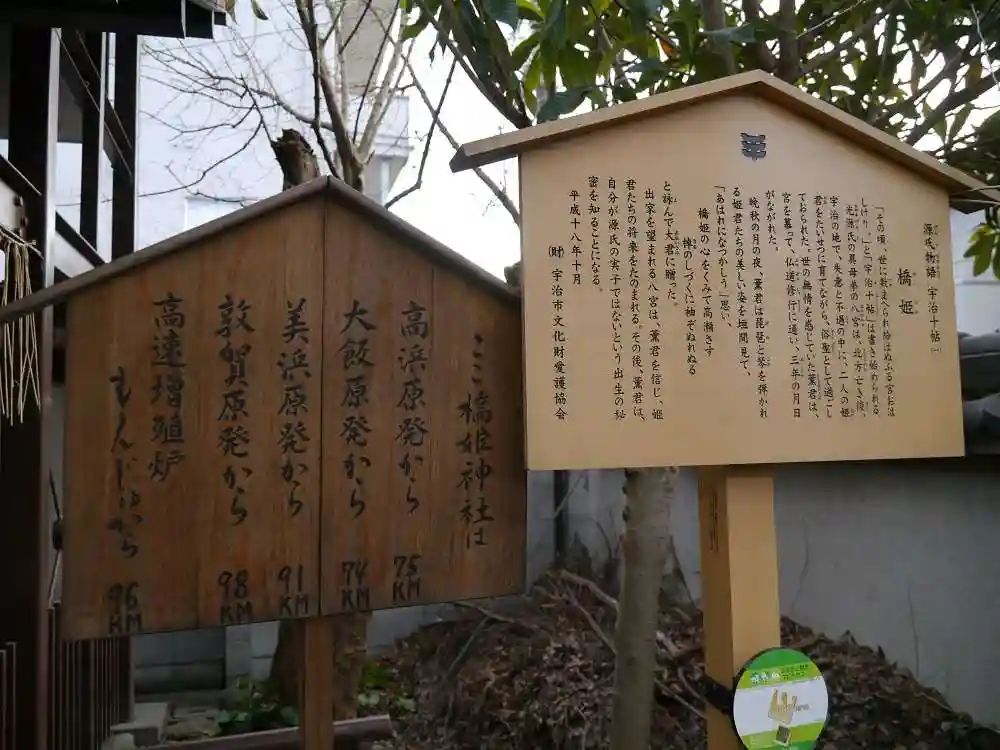 ここ橋姫神社は
高浜原発から 75KM
大飯原発から 74KM
美浜原発から 91KM
敦賀原発から 98KM
高速増殖炉
もんじゅから 96KM
源氏物語 宇治十帖㈠
橋姫
「その頃、世に数まへられ給はぬふる宮おは
しけり。」と「宇治十帖」は書き始められる。
光源氏の異母弟の八宮は、北方亡き後、
宇治の地で、失意と不遇の中に、二人の姫
君をたいせつに育てながら、俗聖として過ごし
ておられた。世の無情を感じていた薫君は、
宮を慕って、仏道修行に通い、三年の月日
がながれた。
晩秋の月の夜、薫君は琵琶と琴を弾かれ
る姫君たちの美しい姿を垣間見て、
「あはれになつかしう」思い、
橋姫の心をくみて高瀬さす
棹のしづくに袖ぞぬれぬる
と詠んで大君に贈った。
出家を望まれる八宮は、薫君を信じ、姫
君たちの将来をたのまれる。その後、薫君は、
自分が源氏の実子ではないという出生の秘
密を知ることになる。
平成十八年十月
(財)宇治市文化財愛護協会